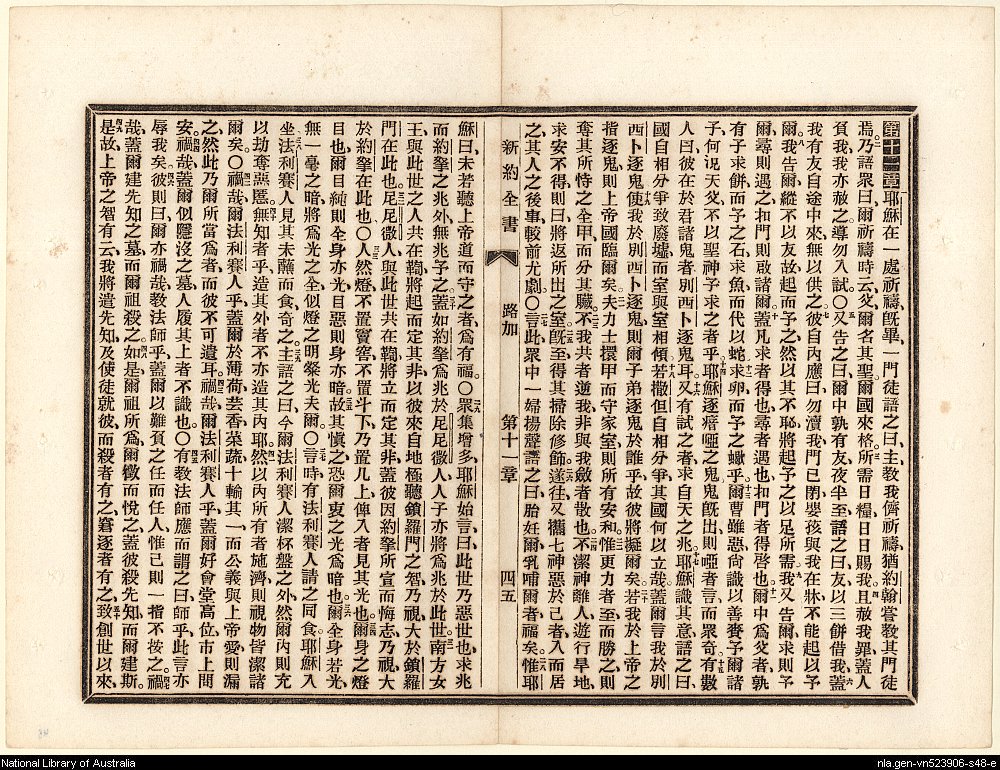 第十一章耶穌在一處祈禱旣畢一門徒語之曰主教我儕祈禱猶約翰嘗教其門徒
焉乃語眾曰爾祈禱時云父爾名其聖爾國來格所需日糧日日賜我且赦我罪蓋人
負我我亦赦之導勿入試〇又告之曰爾中孰有友夜半至語之曰友以三餅借我蓋
我有友自途中來無以供之彼自內應曰勿瀆我門已閉嬰孩與我在牀不能起以予
爾我告爾縱不以友故起而予之然以其不耻將起予之以足所需我又告爾求則予
爾尋則遇之扣門則啟諸爾蓋凡求者得也尋者遇也扣門者得啓也爾中爲父者孰
有子求餅而予之石求魚而代以蛇求卵而予之蠍乎爾曹雖惡尙識以善賚予爾諸
子何况天父不以聖神予求之者乎耶穌逐瘖啞之鬼鬼旣出則啞者言而眾奇有數
人曰彼在於君諸鬼者別西卜逐鬼耳又有試之者求自天之兆耶穌識其意語之曰
國自相分爭致廢墟而室與室相傾若撒但自相分爭其國何以立哉蓋爾言我於別
西卜逐鬼使我於別西卜逐鬼則爾子弟逐鬼於誰乎故彼將擬爾矣若我於上帝之
指逐鬼則上帝國臨爾矣夫力士擐甲而守家室則所有安和惟更力者至而勝之則
奪其所恃之全甲而分其贓不我共者逆我非與我斂者散也不潔神離人遊行旱地
求安不得則曰將返所出之室旣至得其掃除修飾遂往又攜七神惡於己者入而居
之其人之後事較前尤劇〇言此眾中一婦揚聲語之曰胎妊爾乳哺爾者福矣惟耶
新約全書 路加 第十一章 四五
穌曰未若聽上帝道而守之者爲有福〇眾集增多耶穌始言曰此世乃惡世也求兆
而約拏之兆外無兆予之蓋如約拏爲兆於尼尼微人人子亦將爲兆於此世南方女
王與此世之人共在鞫將起而定其非以彼來自地極聽所羅門之智乃視大於所羅
門在此也尼尼微人與此世共在鞫將立而定其非蓋彼因約拏所宣而悔志乃視大
於約拏在此也〇人然燈不置窨窖不置斗下乃置几上俾入者見其光也爾身之燈
目也爾目純則全身亦光目惡則身亦暗故其慎之恐爾衷之光爲暗也爾全身若光
無一毫之暗將爲光之全似燈之明燊光夫爾〇言時有法利賽人請之同食耶穌入
坐法利賽人見其未蘸而食奇之主語之曰今爾法利賽人潔杯盤之外然爾內則充
以劫奪惡慝無知者乎造其外者不亦造其內耶然以內所有者施濟則視物皆潔諸
爾矣〇禍哉爾法利賽人乎蓋爾於薄荷芸香菜蔬十輸其一而公義與上帝愛則漏
之然此乃爾所當爲者而彼不可遺耳禍哉爾法利賽人乎蓋爾好會堂高位市上問
安禍哉蓋爾似隱沒之墓人履其上者不識也〇有教法師應而謂之曰師乎此言亦
辱我矣彼則曰爾亦禍哉教法師乎蓋爾以難負之任而任人惟己則一指不按之禍
哉蓋爾建先知之墓而爾祖殺之如是爾祖所爲爾徵而悅之蓋彼殺先知而爾建斯
是故上帝之智有云我將遣先知及使徒就彼而殺者有之窘逐者有之致創世以來
National Library of Australia
nla.gen-vn523906-s48-e